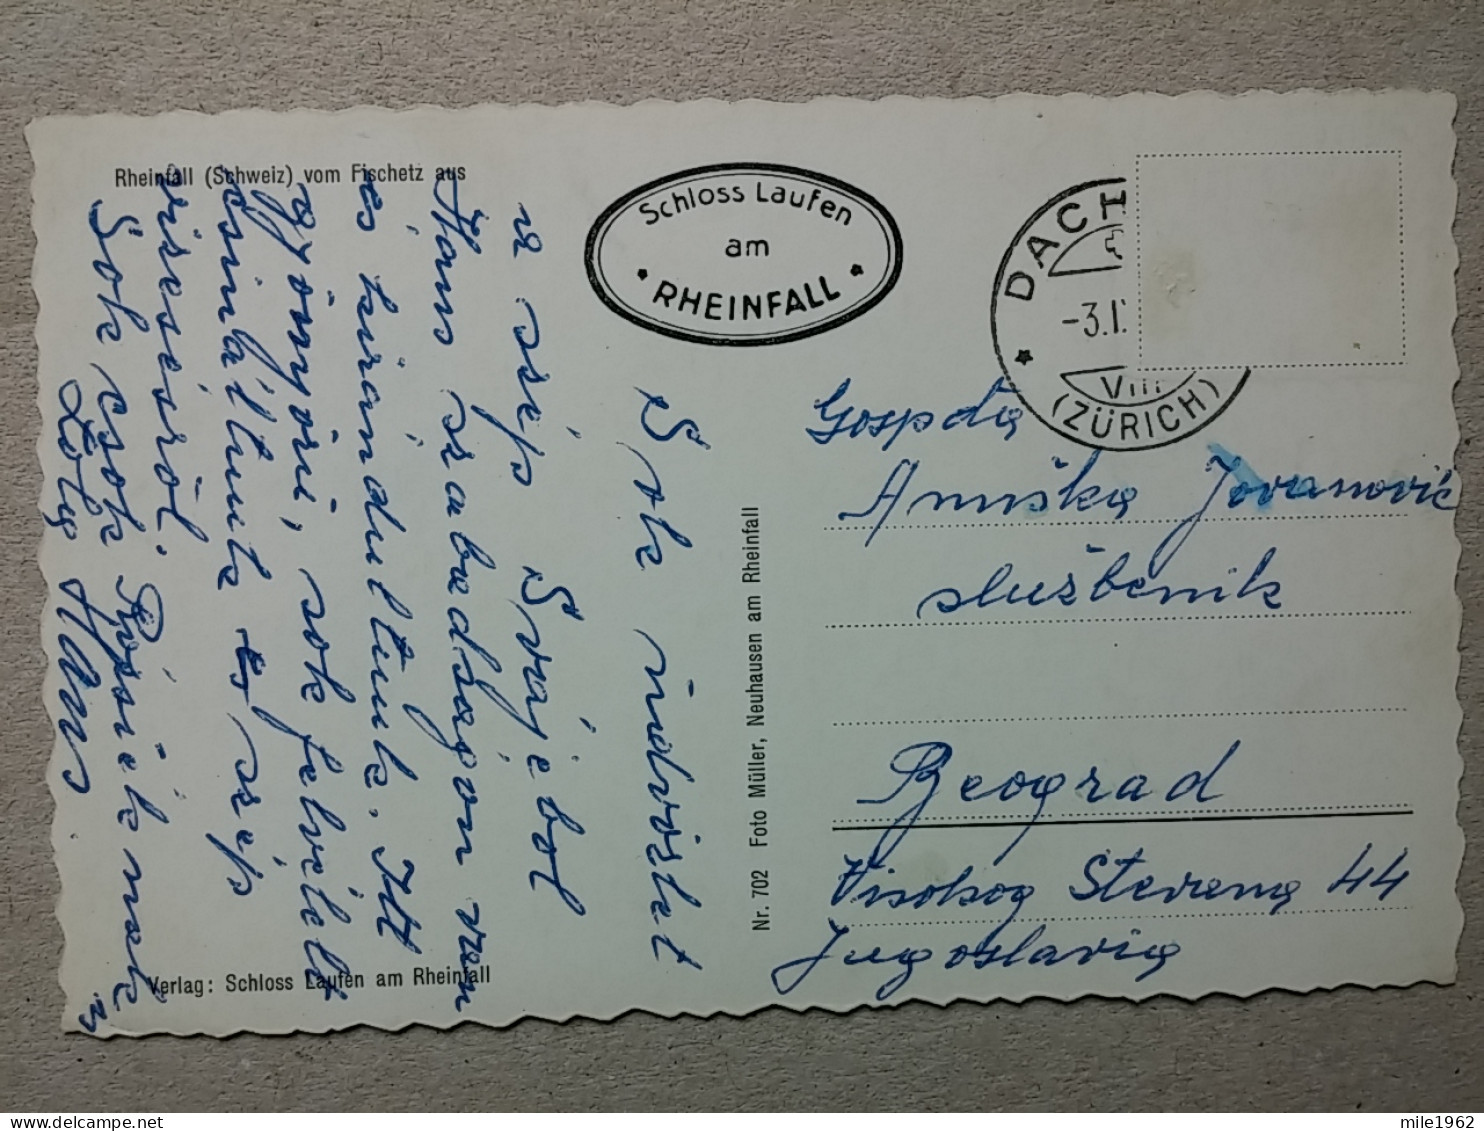 Rheinfall (Schweiz) vom Fischetz aus
Schloss Laufen
am
* RHEINFALL *
DACH
-3.I
VIII
(ZÜRICH)
Sok üdvöslet
a szép Svájcbol
Hans szabadságon van
és kirándultunk. Itt
gyönyörü, sok felvételt
csináltunk szép
Sok csok Rózsiék nak
Lola Hans.
Nr. 702 Foto Müller, Neuhausen am Rheinfall
Verlag: Schloss Laufen am Rheinfall
Gospđa
Anuška Jovanović
službenik
Beograd
Visokog Stevana 44
Jugoslavia
mile1962